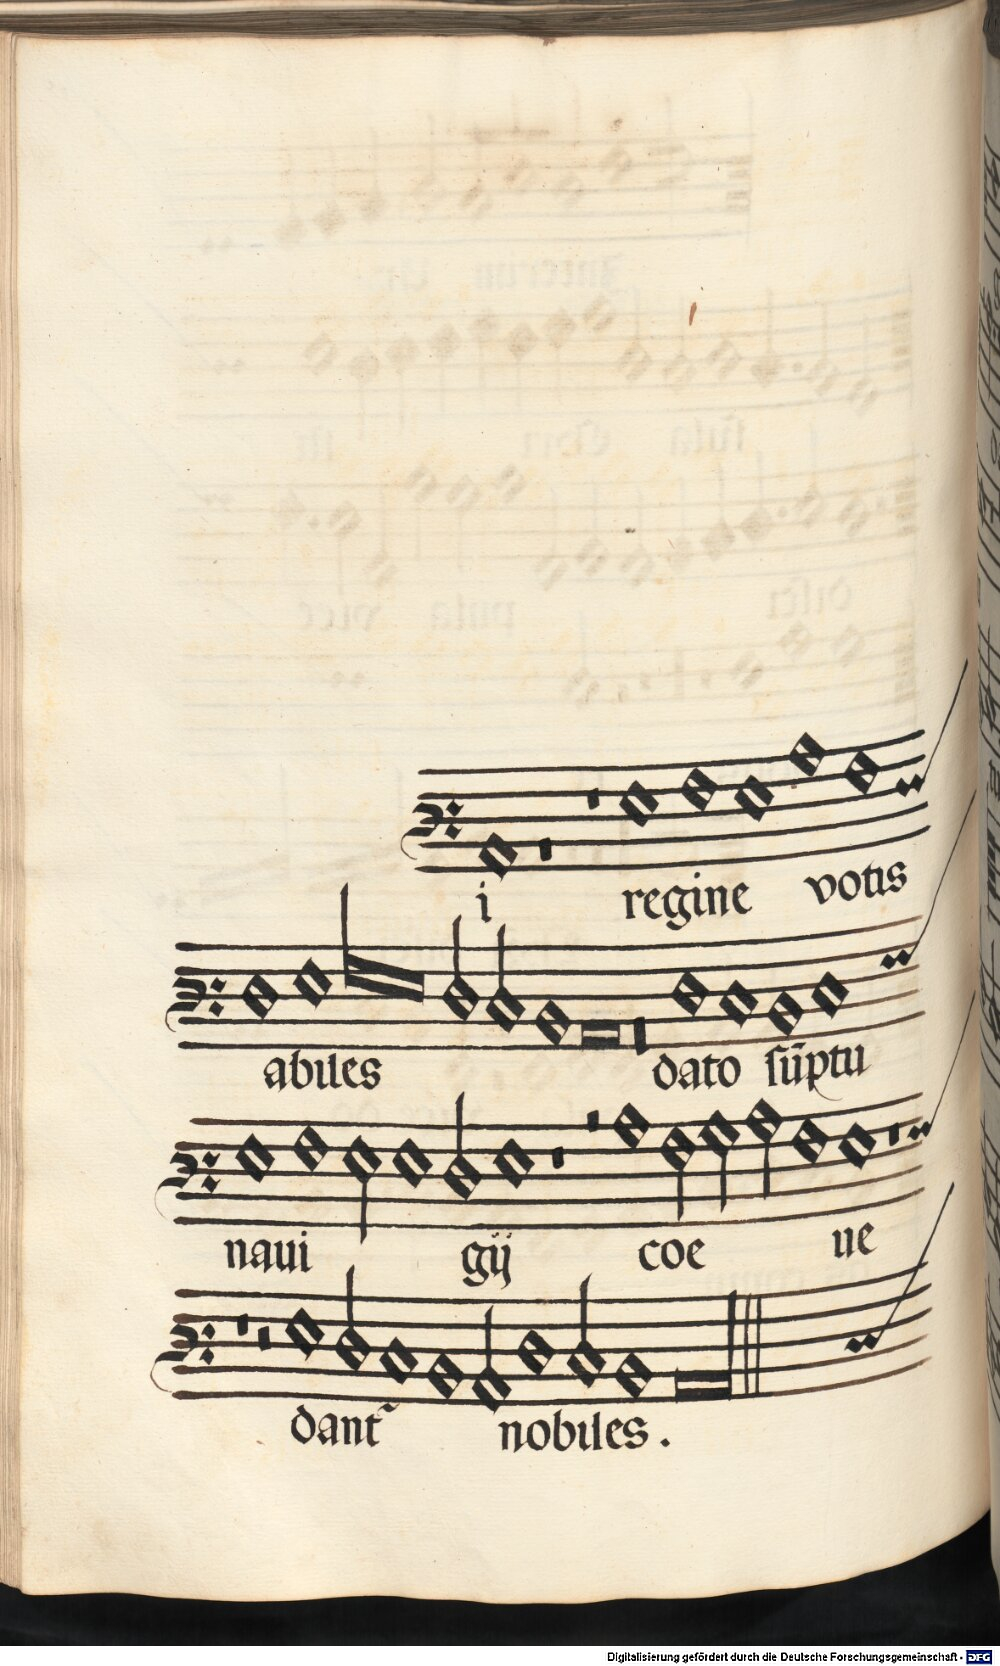 i regine votis
abiles dato sūptu
naui gij coe ue
dant᷑ nobiles.
Digitalisierung gefördert durch die Deutsche Forschungsgemeinschaft - DFG